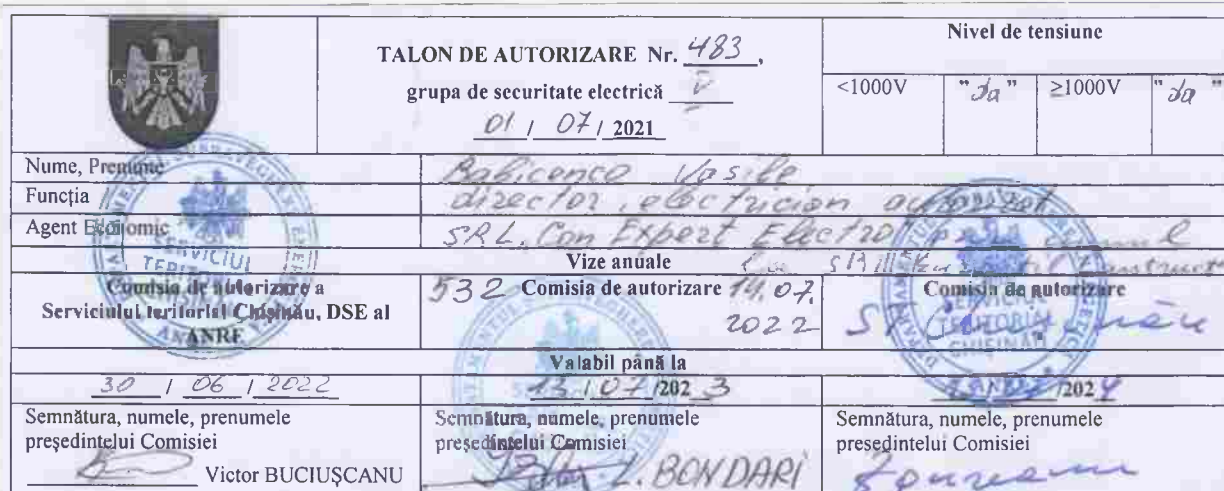 TALON DE AUTORIZARE Nr. 483,
grupa de securitate electrică V
01 / 07 / 2021
Nivel de tensiune
<1000V "da" ≥1000V "da"
Nume, Prenume Babicenco Vasile
Funcția director, electrician autorizat
Agent Economic SRL, Con Expert Electro
Vize anuale
Comisia de autorizare a
Serviciului teritorial Chișinău, DSE al
ANRE
532 Comisia de autorizare 14.07.
2022
Comisia de autorizare
SERVICIUL
TERITORIAL
CHIȘINĂU
Valabil până la
30 / 06 / 2022
13 / 07 /202 3
/202 4
Semnătura, numele, prenumele
președintelui Comisiei
Victor BUCIUȘCANU
Semnătura, numele, prenumele
președintelui Comisiei
L. BONDARI
Semnătura, numele, prenumele
președintelui Comisiei